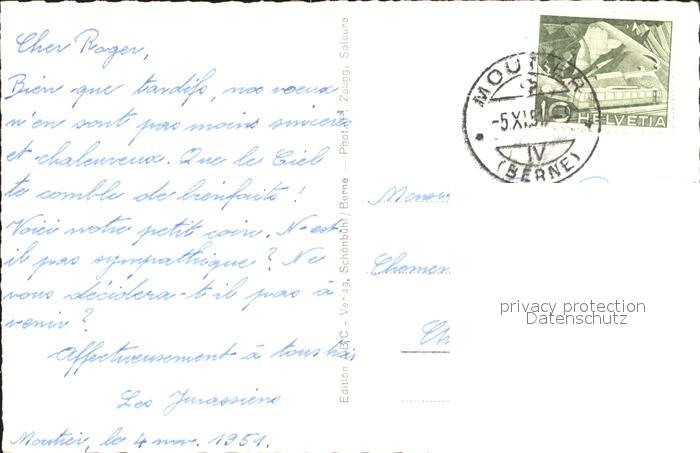 Cher Roger,
Bien que tardifs, nos voeux
n'en sont pas moins sincères
et chaleureux. Que le Ciel
te comble de bienfaits !
Voici notre petit coin. N'est-
il pas sympathique ? Ne
vous décidera-t-il pas à
venir ?
Affectueusement à tous
Les Jurassiens
Moutier, le 4 nov. 1951.
Verlag, Schönbühl/Berne - Phot. Zaugg, Soleure
Edition
MOUTIER
-5.XI.51
IV
(BERNE)
10 HELVETIA
privacy protection
Datenschutz